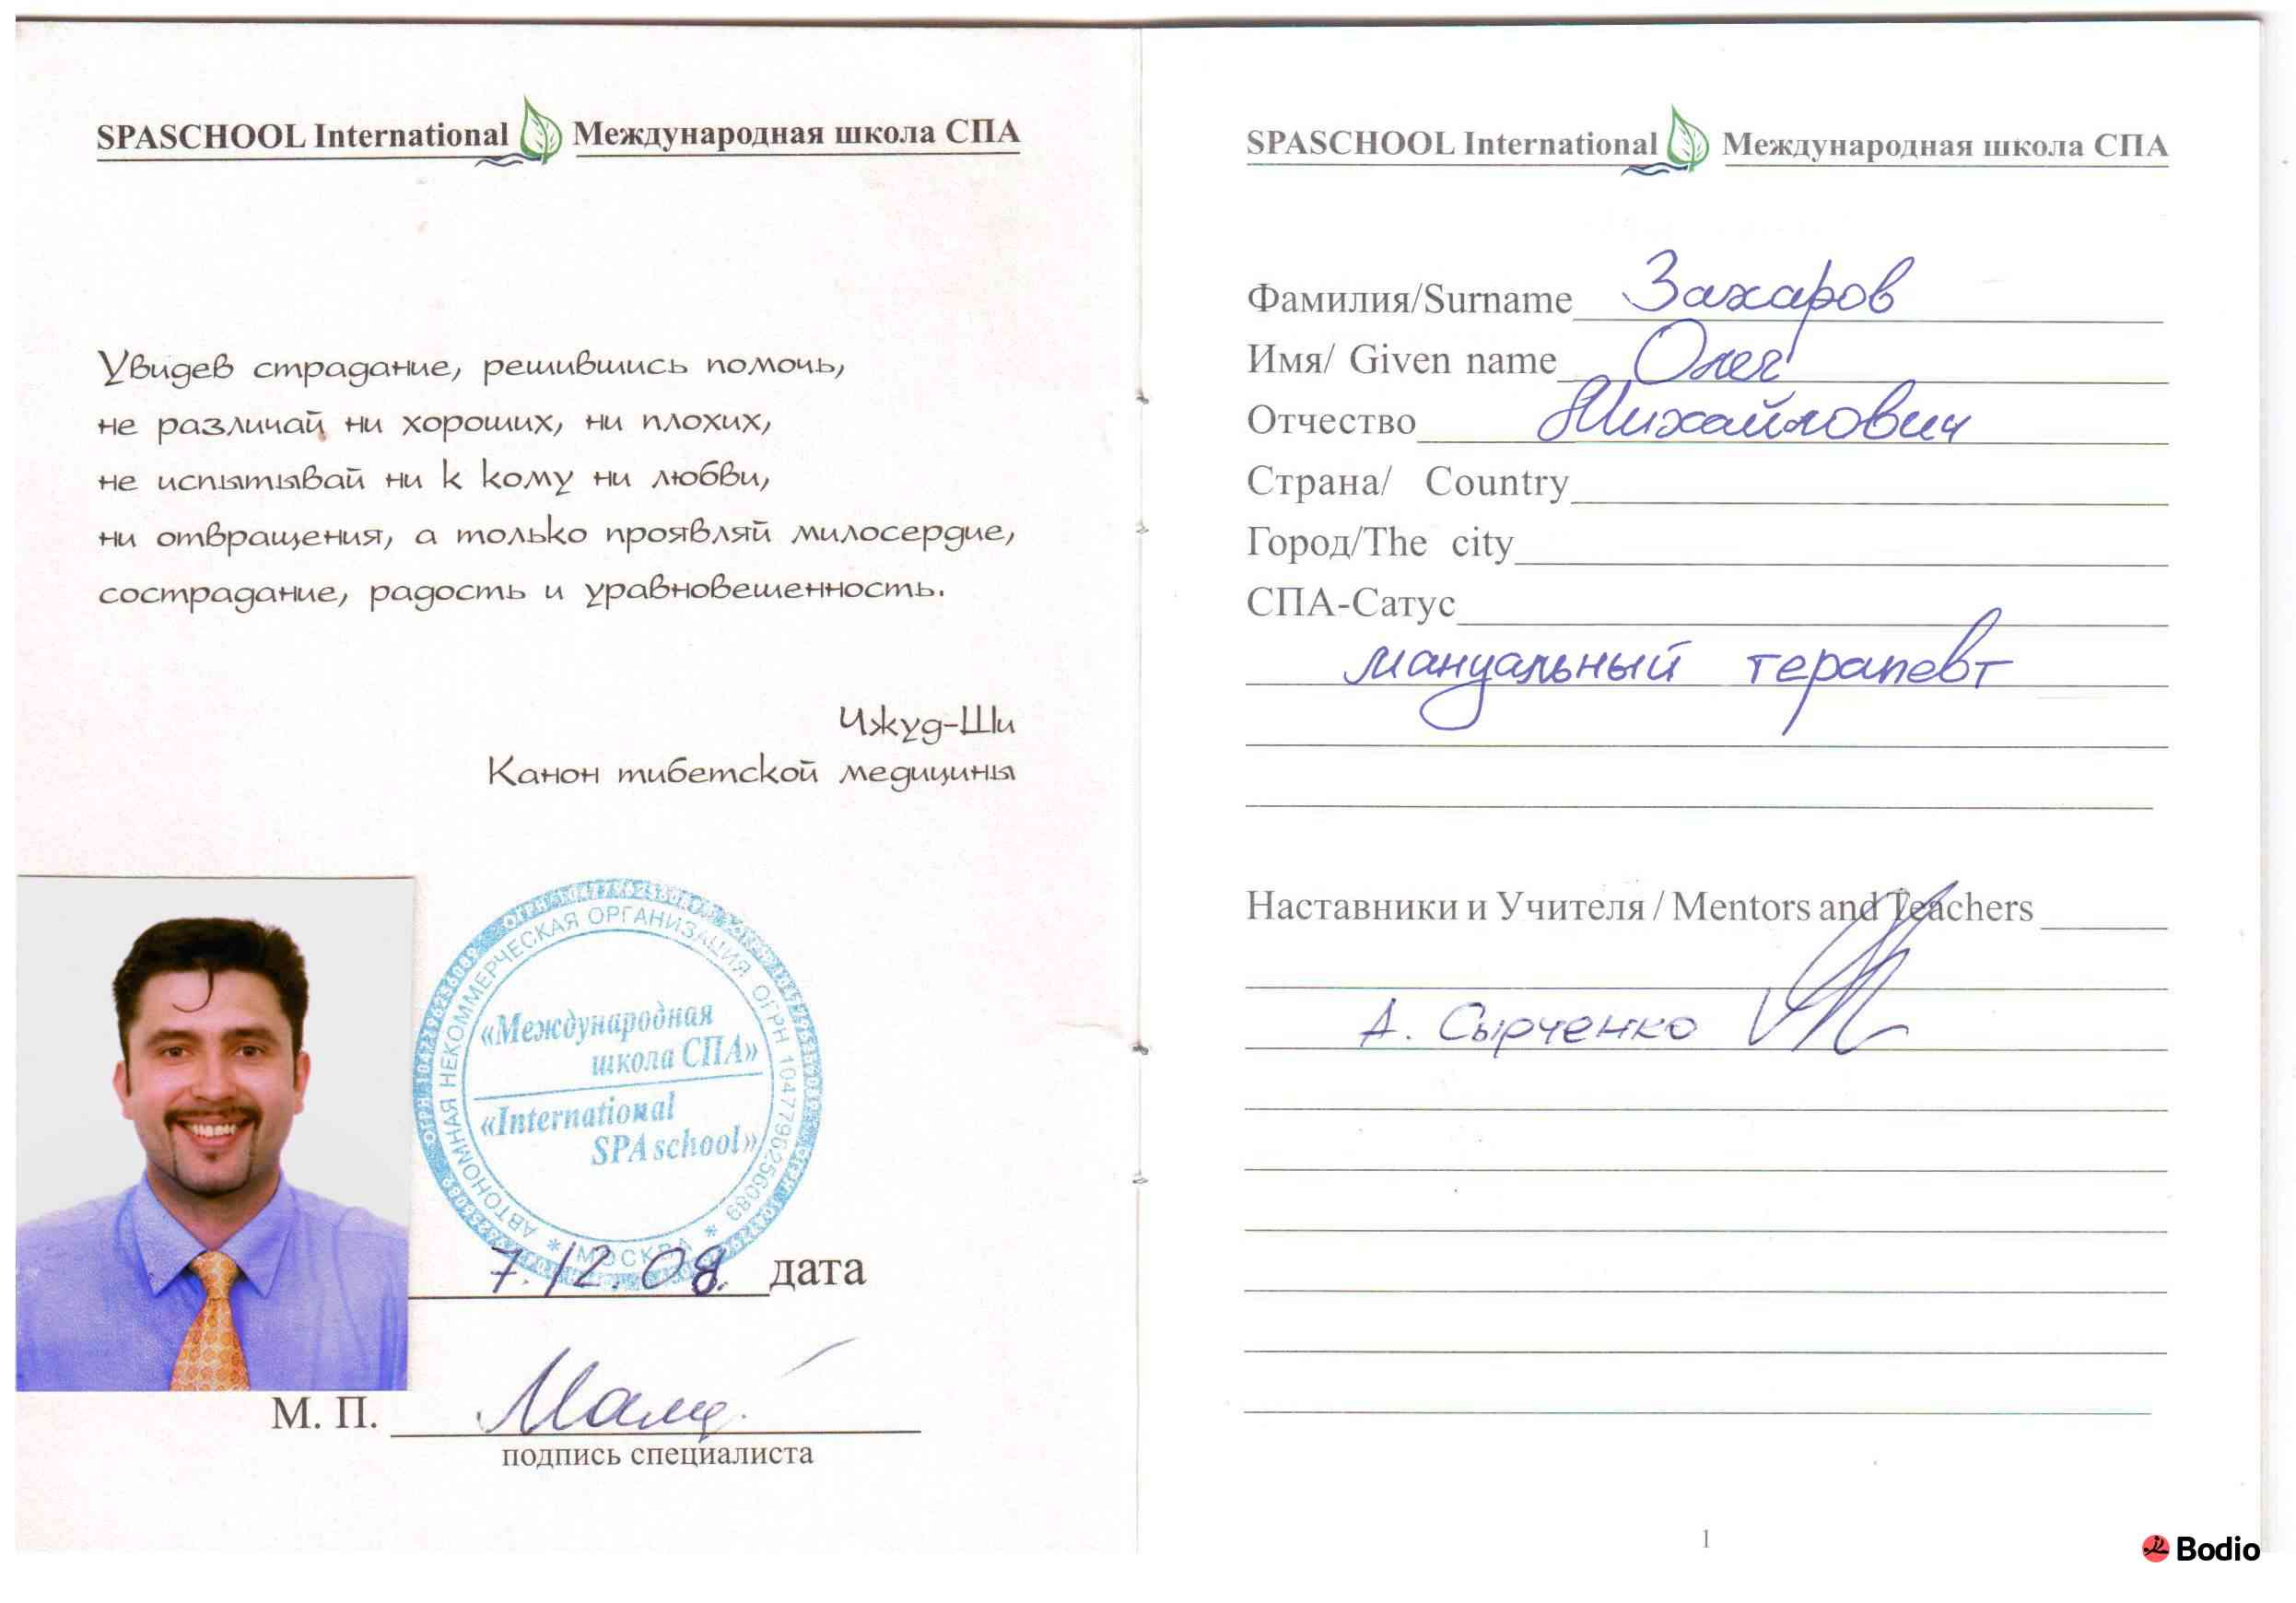 SPASCHOOL International Международная школа СПА
Увидев страдание, решившись помочь,
не различай ни хороших, ни плохих,
не испытывай ни к кому ни любви,
ни отвращения, а только проявляй милосердие,
сострадание, радость и уравновешенность.
Чжуд-Ши
Канон тибетской медицины
АВТОНОМНАЯ НЕКОММЕРЧЕСКАЯ ОРГАНИЗАЦИЯ ОГРН 1047796256089
* МОСКВА *
«Международная
школа СПА»
«International
SPA school»
7.12.08. дата
М. П.
подпись специалиста
SPASCHOOL International Международная школа СПА
Фамилия/Surname Захаров
Имя/ Given name Олег
Отчество Михайлович
Страна/ Country
Город/The city
СПА-Сатус
мануальный терапевт
Наставники и Учителя / Mentors and Teachers
А. Сырченко
1
Bodio